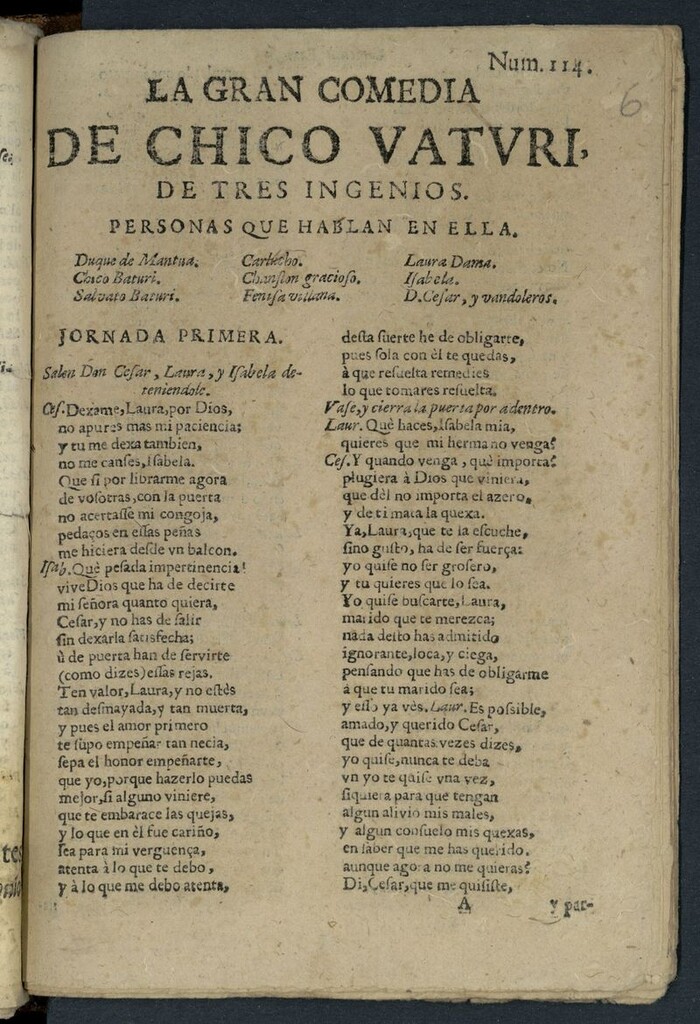 Num. 114.
6
LA GRAN COMEDIA
DE CHICO VATVRI,
DE TRES INGENIOS.
PERSONAS QUE HABLAN EN ELLA.
Duque de Mantua.
Chico Baturi.
Salvato Baturi.
Carlucho.
Chanflon gracioso.
Fenisa villana.
Laura Dama.
Isabela.
D. Cesar, y vandoleros.
JORNADA PRIMERA.
Salen Don Cesar, Laura, y Isabela de-
teniendole.
Ces. Dexame, Laura, por Dios,
no apures mas mi paciencia;
y tu me dexa tambien,
no me canses, Isabela.
Que si por librarme agora
de vosotras, con la puerta
no acertasse mi congoja,
pedaços en essas peñas
me hiciera desde vn balcon.
Isab. Què pesada impertinencia!
vive Dios que ha de decirte
mi señora quanto quiera,
Cesar, y no has de salir
sin dexarla satisfecha;
ù de puerta han de servirte
(como dizes) essas rejas.
Ten valor, Laura, y no estès
tan desmayada, y tan muerta,
y pues el amor primero
te supo empeñar tan necia,
sepa el honor empeñarte,
que yo, porque hazerlo puedas
mejor, si alguno viniere,
que te embarace las quejas,
y lo que en èl fue cariño,
sea para mi verguença,
atenta à lo que te debo,
y à lo que me debo atenta,
desta suerte he de obligarte,
pues sola con èl te quedas,
à que resuelta remedies
lo que tomares resuelta.
Vase, y cierra la puerta por adentro.
Laur. Què haces, Isabela mia,
quieres que mi hermano venga?
Ces. Y quando venga, què importa?
plugiera à Dios que viniera,
que dèl no importa el azero,
y de ti mata la quexa.
Ya, Laura, que te la escuche,
sino gusto, ha de ser fuerça:
yo quise no ser grosero,
y tu quieres que lo sea.
Yo quise buscarte, Laura,
marido que te merezca;
nada desto has admitido
ignorante, loca, y ciega,
pensando que has de obligarme
à que tu marido sea;
y esso ya vès. Laur. Es possible,
amado, y querido Cesar,
que de quantas vezes dizes,
yo quise, nunca te deba
vn yo te quise vna vez,
siquiera para que tengan
algun alivio mis males,
y algun consuelo mis quexas,
en saber que me has querido,
aunque agora no me quieras?
Di, Cesar, que me quisiste,
A
y par-